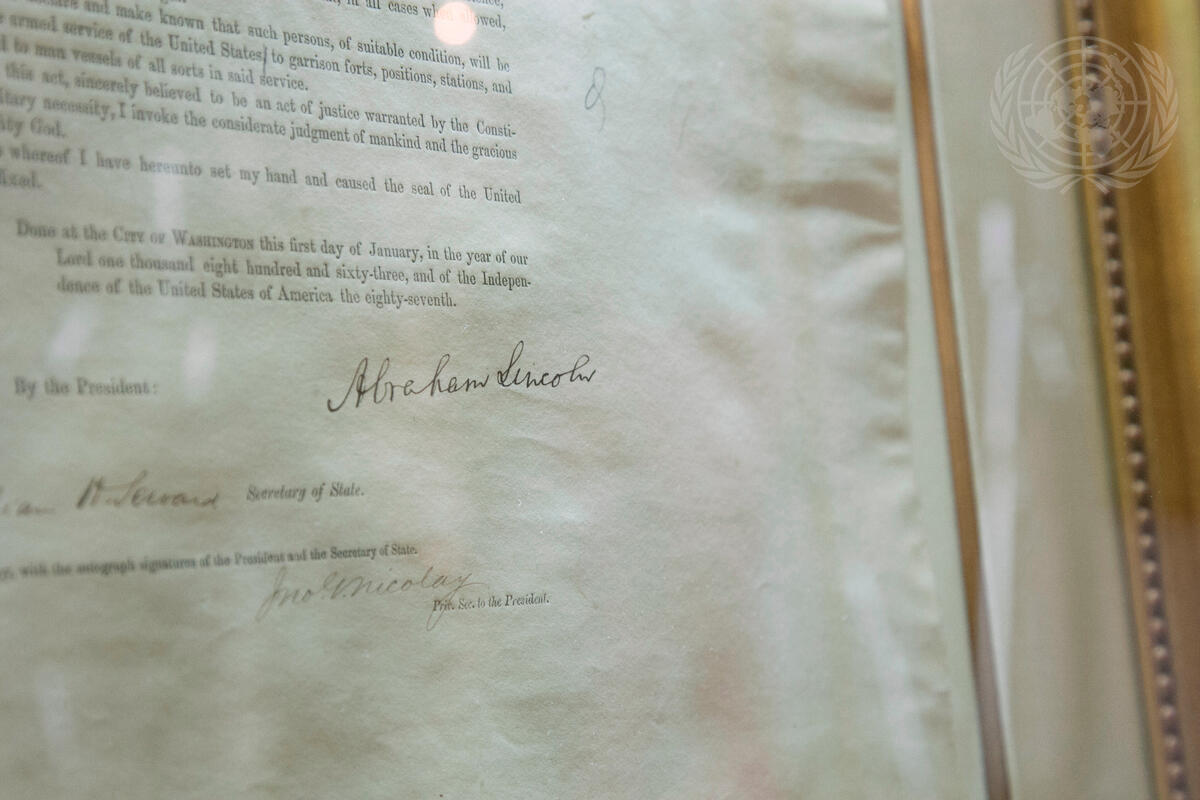 in all cases when allowed,
and make known that such persons, of suitable condition, will be
armed service of the United States, to garrison forts, positions, stations, and
to man vessels of all sorts in said service.
this act, sincerely believed to be an act of justice warranted by the Consti-
necessity, I invoke the considerate judgment of mankind and the gracious
God.
whereof I have hereunto set my hand and caused the seal of the United
Done at the CITY OF WASHINGTON this first day of January, in the year of our
Lord one thousand eight hundred and sixty-three, and of the Indepen-
dence of the United States of America the eighty-seventh.
By the President:
Abraham Lincoln
H. Seward Secretary of State.
with the autograph signatures of the President and the Secretary of State.
Jno. G. Nicolay
Priv. Sec. to the President.